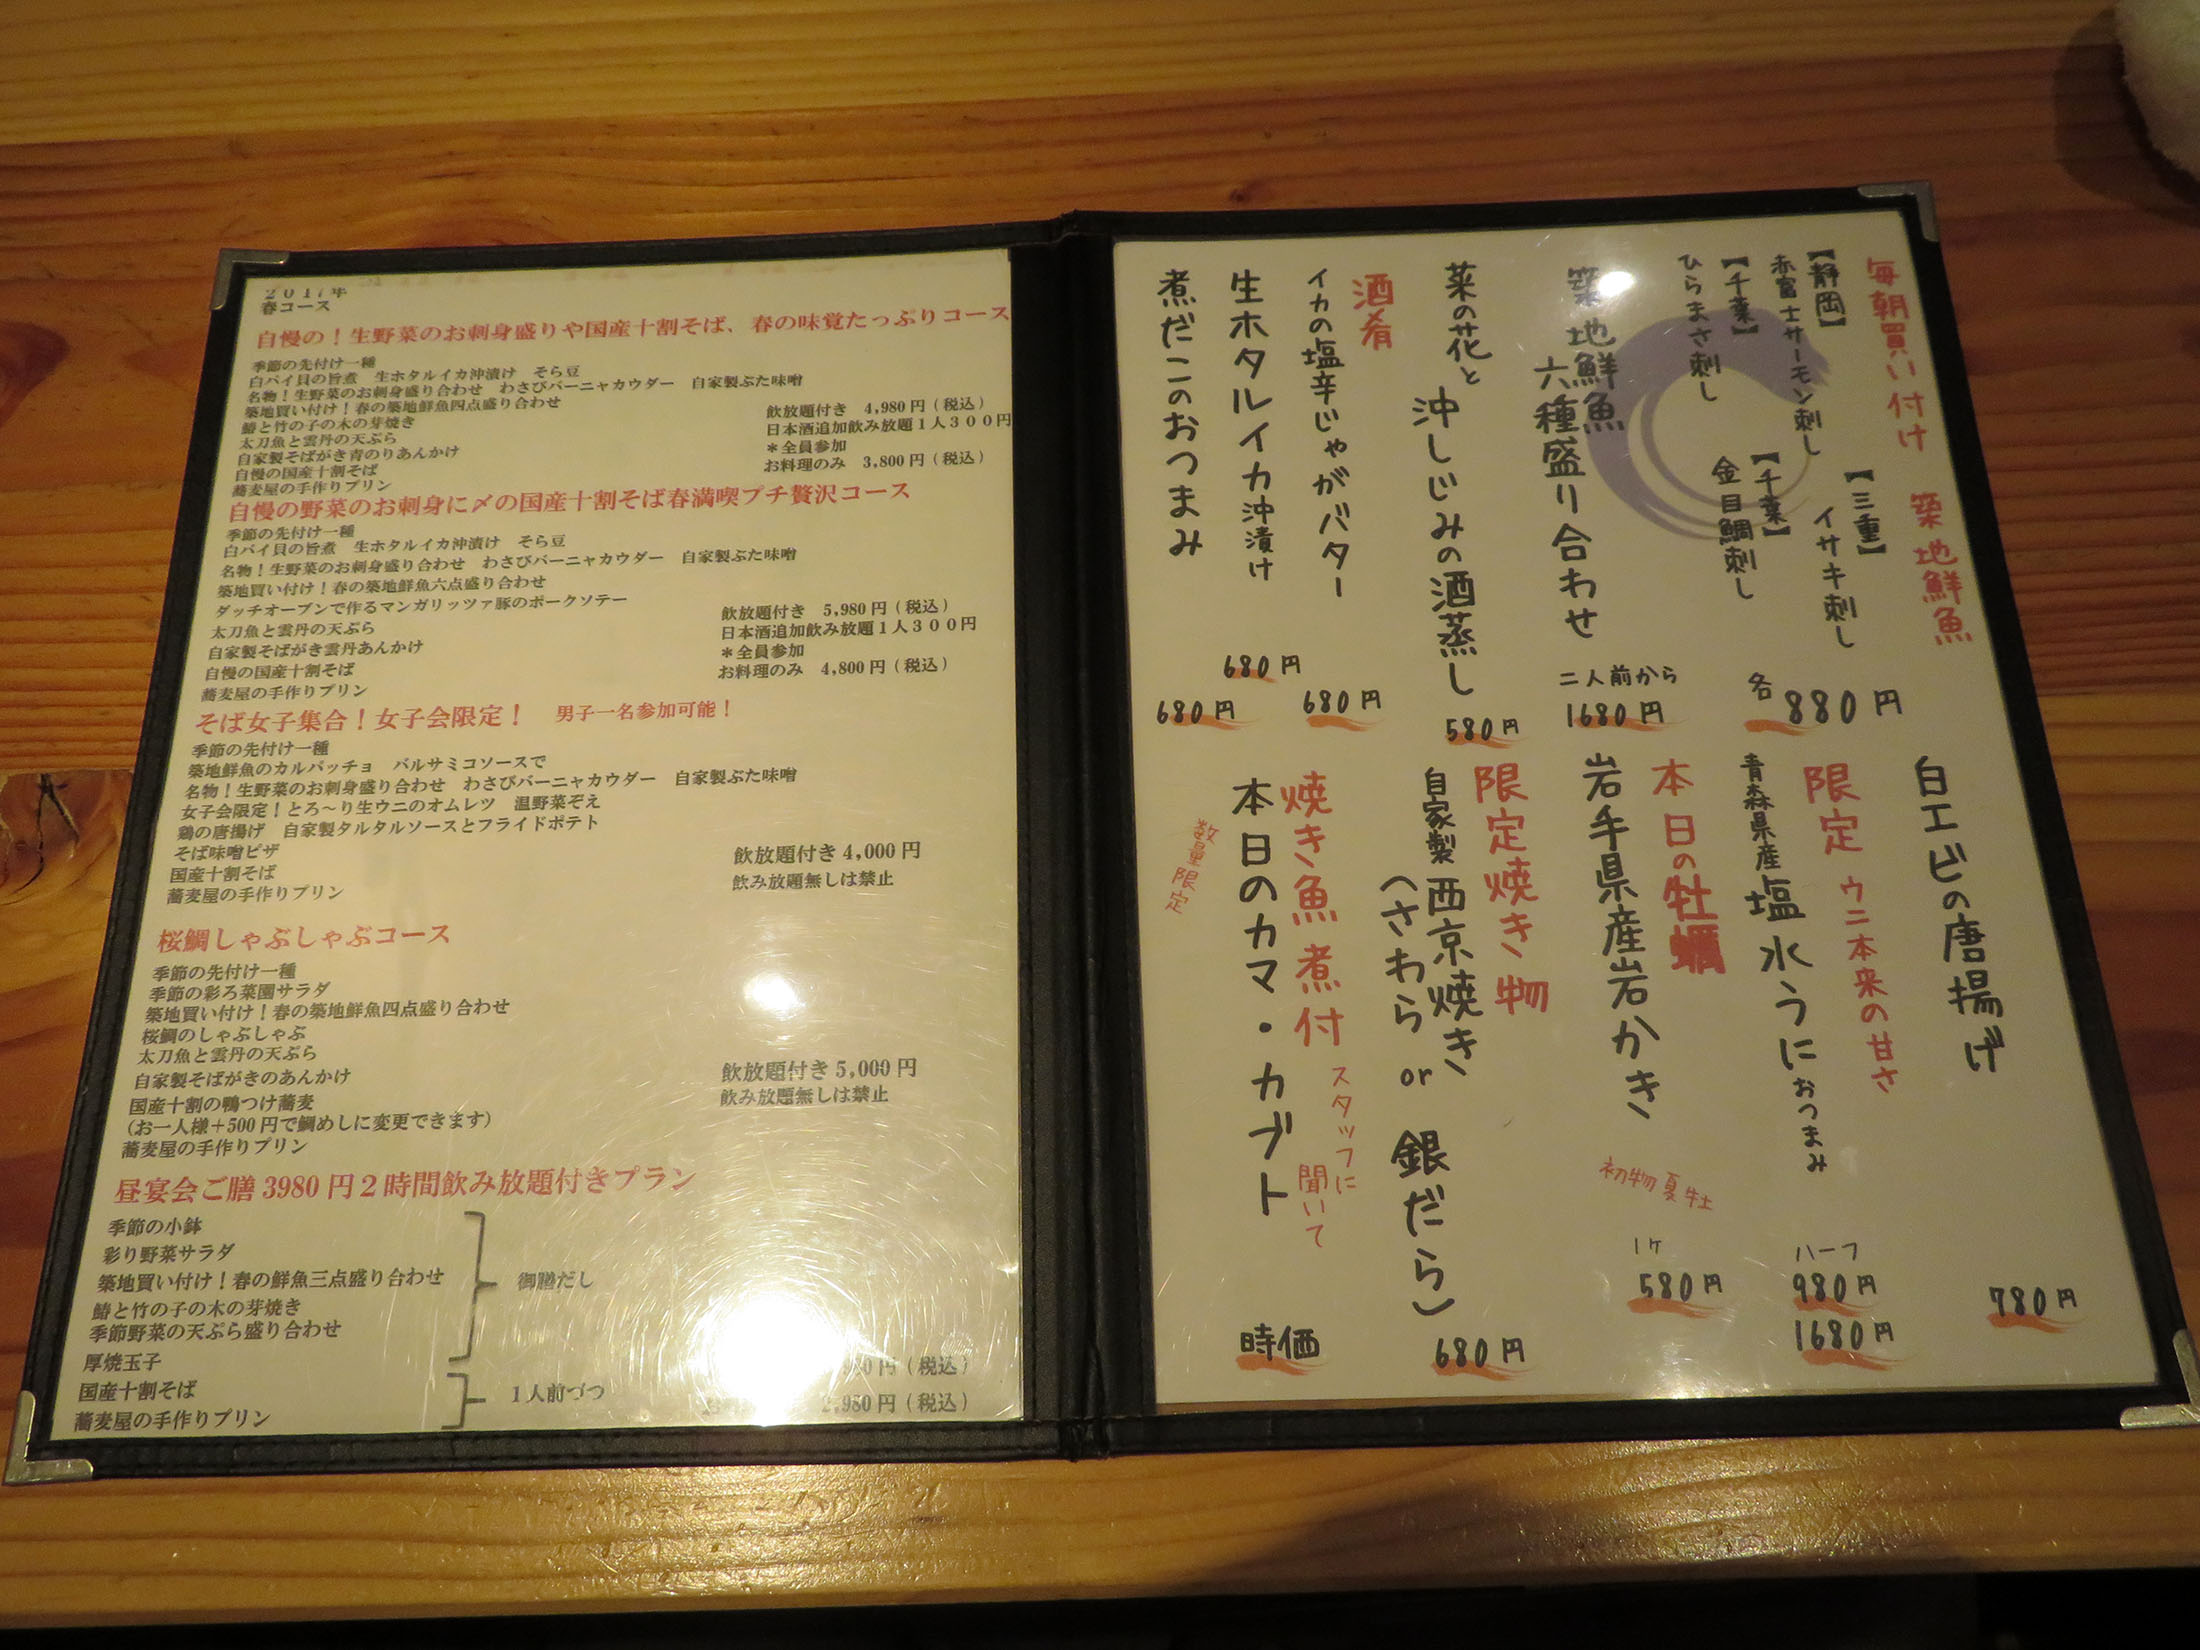 2017年
春コース
自慢の！生野菜のお刺身盛りや国産十割そば、春の味覚たっぷりコース
季節の先付け一種
白バイ貝の旨煮　生ホタルイカ沖漬け　そら豆
名物！生野菜のお刺身盛り合わせ　わさびバーニャカウダー　自家製ぶた味噌
築地買い付け！春の築地鮮魚四点盛り合わせ
鰆と竹の子の木の芽焼き
太刀魚と雲丹の天ぷら
自家製そばがき青のりあんかけ
自慢の国産十割そば
蕎麦屋の手作りプリン
飲放題付き　4,980円（税込）
日本酒追加飲み放題１人３００円
＊全員参加
お料理のみ　3,800円（税込）
自慢の野菜のお刺身に〆の国産十割そば春満喫プチ贅沢コース
季節の先付け一種
白バイ貝の旨煮　生ホタルイカ沖漬け　そら豆
名物！生野菜のお刺身盛り合わせ　わさびバーニャカウダー　自家製ぶた味噌
築地買い付け！春の築地鮮魚六点盛り合わせ
ダッチオーブンで作るマンガリッツァ豚のポークソテー
太刀魚と雲丹の天ぷら
自家製そばがき雲丹あんかけ
自慢の国産十割そば
蕎麦屋の手作りプリン
飲放題付き　5,980円（税込）
日本酒追加飲み放題１人３００円
＊全員参加
お料理のみ　4,800円（税込）
そば女子集合！女子会限定！　男子一名参加可能！
季節の先付け一種
築地鮮魚のカルパッチョ　バルサミコソースで
名物！生野菜のお刺身盛り合わせ　わさびバーニャカウダー　自家製ぶた味噌
女子会限定！とろ～り生ウニのオムレツ　温野菜ぞえ
鶏の唐揚げ　自家製タルタルソースとフライドポテト
そば味噌ピザ
国産十割そば
蕎麦屋の手作りプリン
飲放題付き4,000円
飲み放題無しは禁止
桜鯛しゃぶしゃぶコース
季節の先付け一種
季節の彩ろ菜園サラダ
築地買い付け！春の築地鮮魚四点盛り合わせ
桜鯛のしゃぶしゃぶ
太刀魚と雲丹の天ぷら
自家製そばがきのあんかけ
国産十割の鴨つけ蕎麦
（お一人様＋500円で鯛めしに変更できます）
蕎麦屋の手作りプリン
飲放題付き5,000円
飲み放題無しは禁止
昼宴会ご膳3980円２時間飲み放題付きプラン
季節の小鉢
彩り野菜サラダ
築地買い付け！春の鮮魚三点盛り合わせ
鰆と竹の子の木の芽焼き
季節野菜の天ぷら盛り合わせ
厚焼玉子
国産十割そば
蕎麦屋の手作りプリン
御膳だし
１人前づつ
円（税込）
2,980円（税込）
毎朝買い付け　築地鮮魚
【静岡】
赤富士サーモン刺し
【三重】
イサキ刺し
【千葉】
ひらまさ刺し
【千葉】
金目鯛刺し
各880円
築地鮮魚
六種盛り合わせ
二人前から
1680円
菜の花と
沖しじみの酒蒸し
580円
酒肴
イカの塩辛じゃがバター
680円
生ホタルイカ沖漬け
680円
煮だこのおつまみ
680円
白エビの唐揚げ
780円
限定　ウニ本来の甘さ
青森県産塩水うにおつまみ
ハーフ
980円
1680円
本日の牡蠣
岩手県産岩かき
初物夏牡
1ケ
580円
限定焼き物
自家製西京焼き
（さわら or 銀だら）
680円
焼き魚煮付
スタッフに
聞いて
本日のカマ・カブト
数量限定
時価